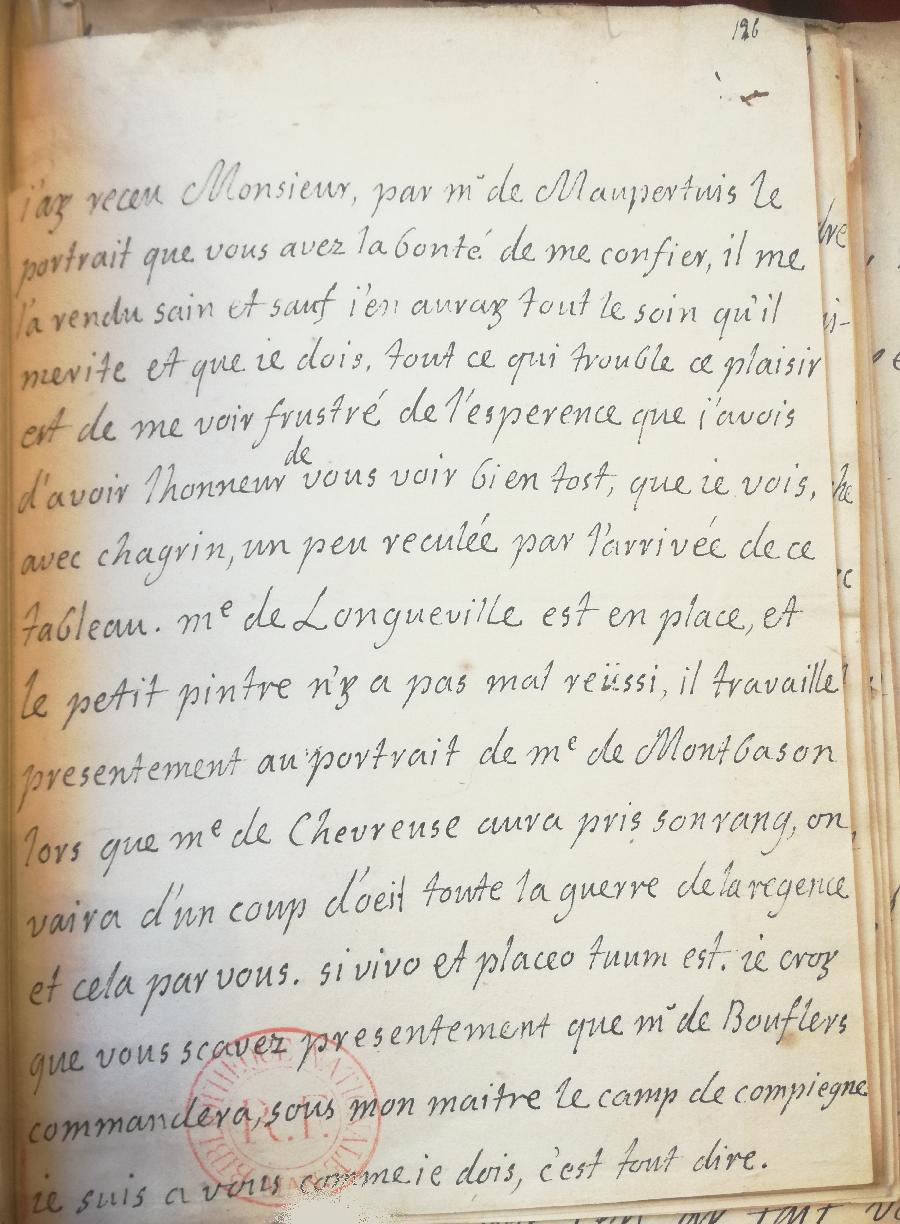 126
i'ay receu Monsieur, par mr de Maupertuis le
portrait que vous avez la bonté de me confier, il me
l'a rendu sain et sauf i'en auray tout le soin qu'il
merite et que ie dois, tout ce qui trouble ce plaisir
est de me voir frustré de l'esperence que j'avois
d'avoir lhonneur de vous voir bien tost, que ie vois,
avec chagrin, un peu reculée par l'arrivée de ce
tableau. me de Longueville est en place, et
le petit pintre n'y a pas mal reüssi, il travaille
presentement au portrait de me de Montbason
lors que me de Chevreuse aura pris son rang, on
vaira d'un coup d'oeil toute la guerre de la regence
et cela par vous. si vivo et placeo tuum est. ie croy
que vous scavez presentement que mr de Bouflers
commandera, sous mon maitre le camp de compiegne
ie suis a vous comme ie dois, c'est tout dire.
R.F.